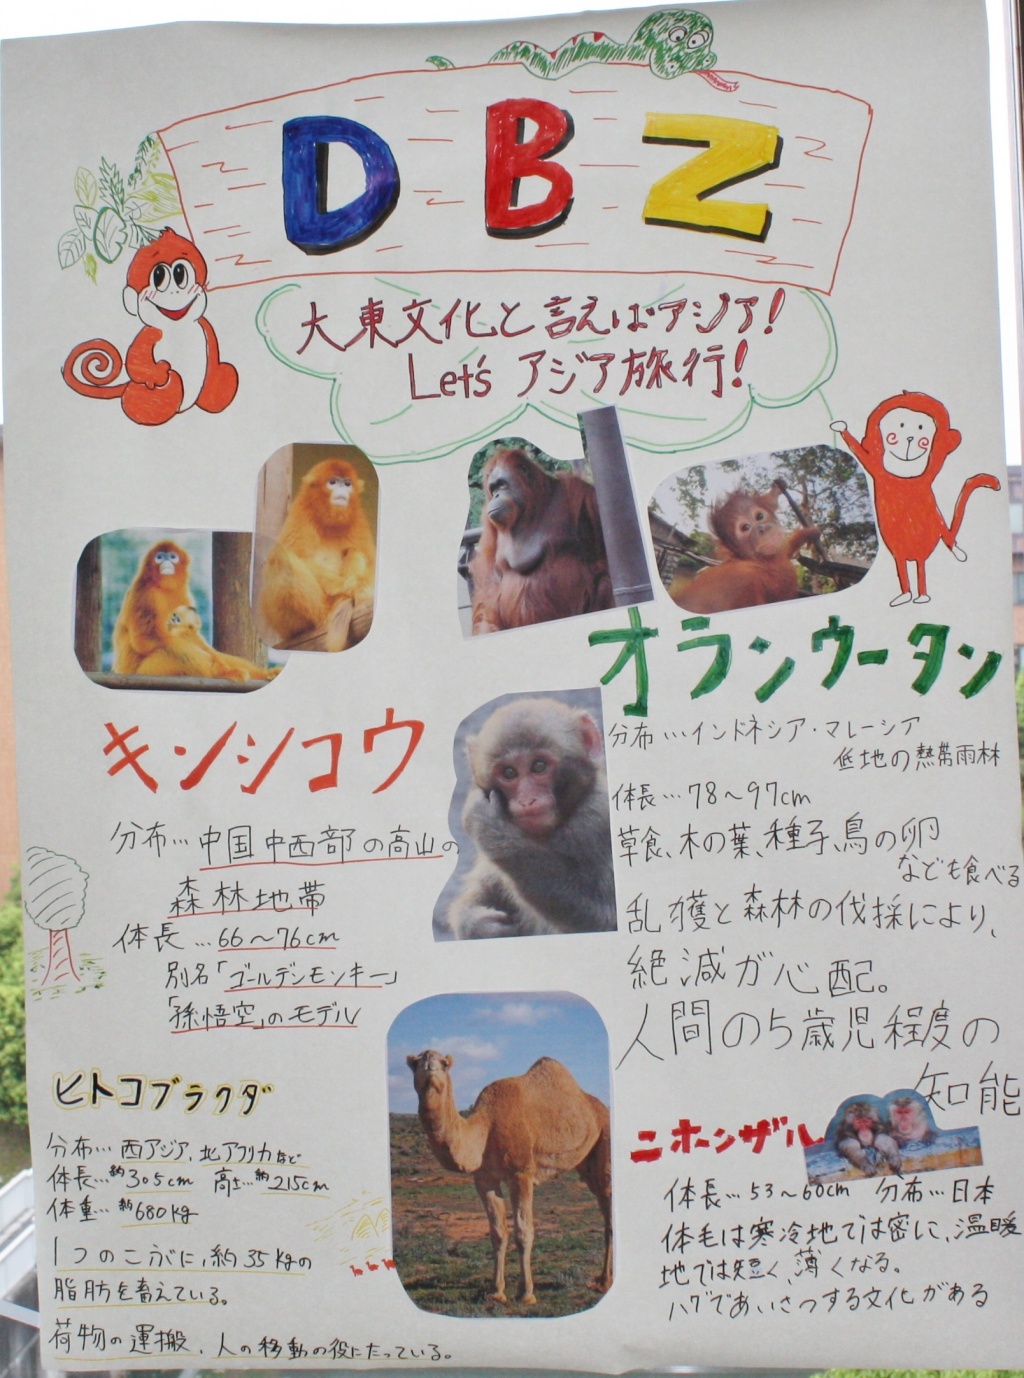 DBZ
大東文化と言えばアジア!
Let's アジア旅行!
キンシコウ
分布…中国中西部の高山の
森林地帯
体長…66〜76cm
別名「ゴールデンモンキー」
「孫悟空」のモデル
オランウータン
分布…インドネシア・マレーシア
低地の熱帯雨林
体長…78〜97cm
草食、木の葉、種子、鳥の卵
なども食べる
乱獲と森林の伐採により、
絶滅が心配。
人間の5歳児程度の
知能
ヒトコブラクダ
分布…西アジア、北アフリカなど
体長…約305cm 高さ…約215cm
体重…約680kg
1つのこぶに、約35kgの
脂肪を蓄えている。
荷物の運搬、人の移動の役にたっている。
ニホンザル
体長…53〜60cm 分布…日本
体毛は寒冷地では密に、温暖
地では短く、薄くなる。
ハグであいさつする文化がある